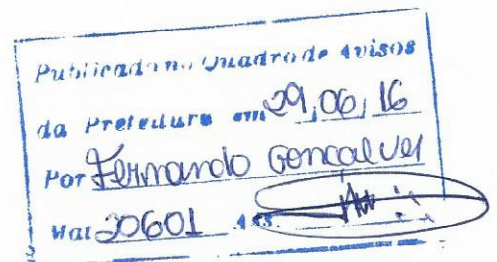 Publicado no Quadro de Avisos
da Prefeitura em 29,06,16
Por Fernando Goncalves
Mat 20601 Ass.